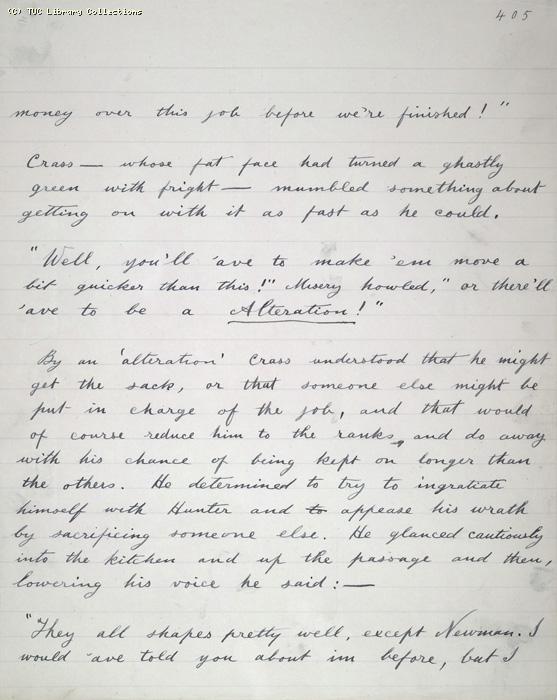 (C) TUC Library Collections
405
money over this job before we're finished!"
Crass — whose fat face had turned a ghastly
green with fright — mumbled something about
getting on with it as fast as he could.
"Well, you'll 'ave to make 'em move a
bit quicker than this!" Misery howled," or there'll
'ave to be a Alteration!"
By an 'alteration' Crass understood that he might
get the sack, or that someone else might be
put in charge of the job, and that would
of course reduce him to the ranks, and do away
with his chance of being kept on longer than
the others. He determined to try to ingratiate
himself with Hunter and to appease his wrath
by sacrificing someone else. He glanced cautiously
into the kitchen and up the passage and then,
lowering his voice he said: —
"They all shapes pretty well, except Newman. I
would 'ave told you about im before, but I